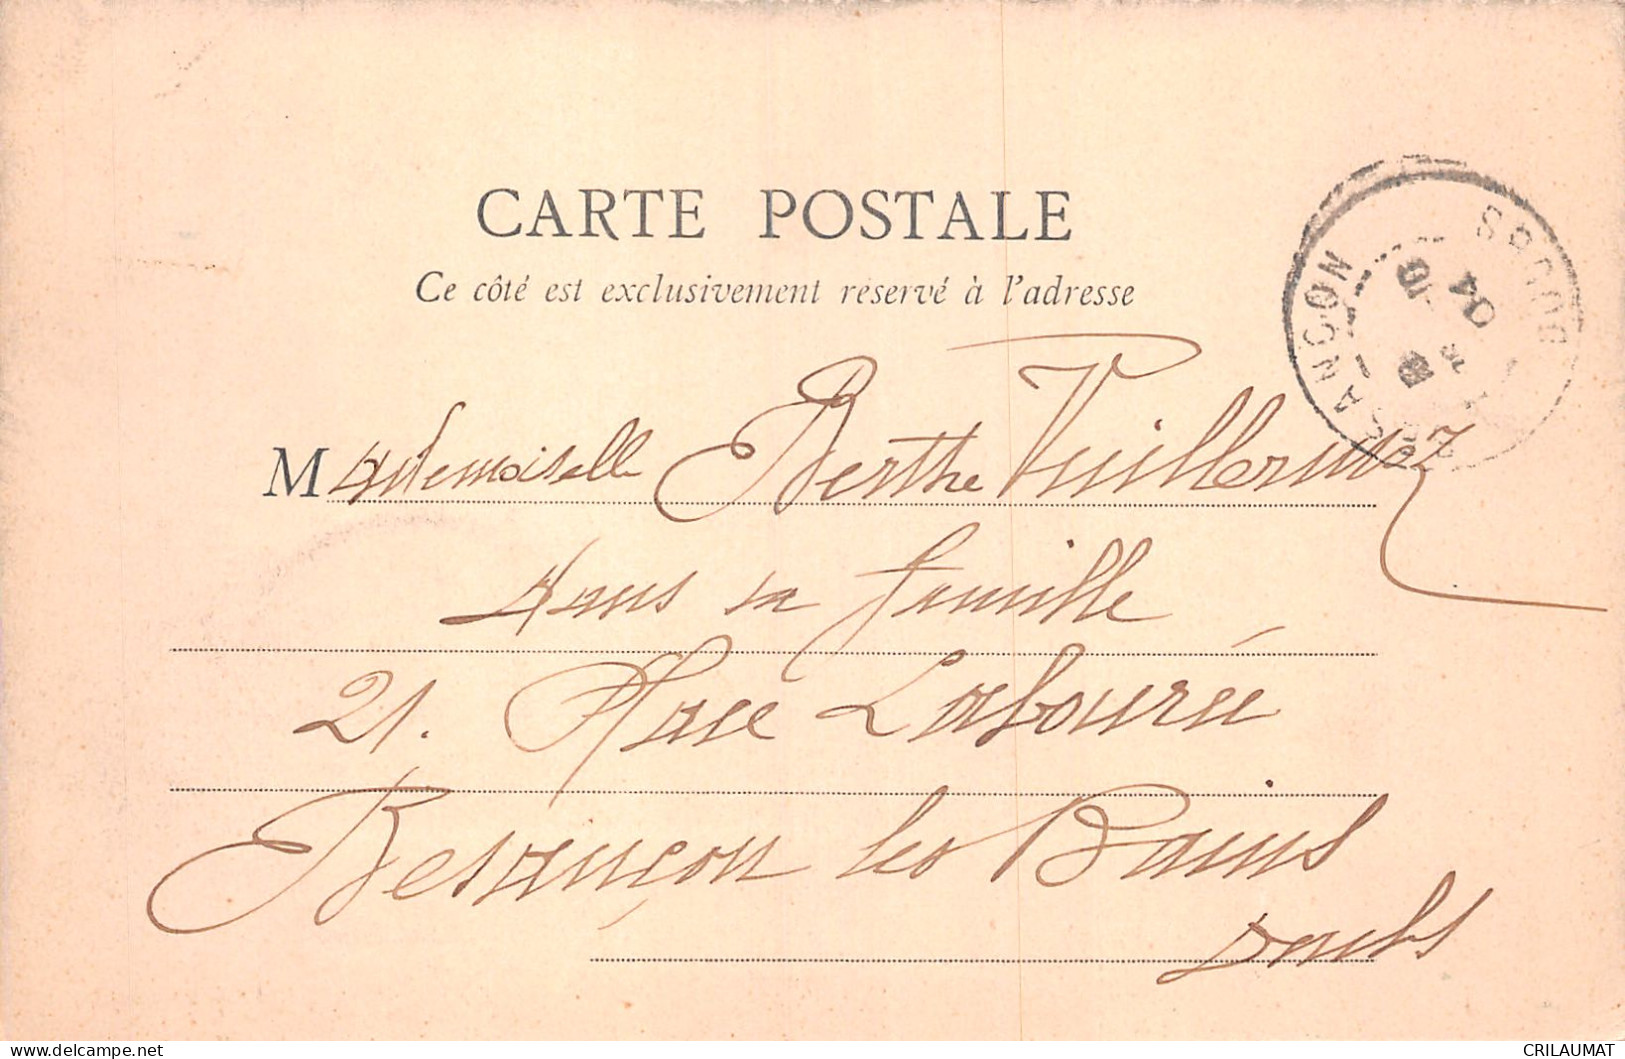 CARTE POSTALE
Ce côté est exclusivement réservé à l'adresse
Mademoiselle Berthe Vuillermoz
dans sa famille
21. Place Labourée
Besançon les Bains
Doubs
BESANÇON
DOUBS
10
04
CRILAUMAT
delcampe.net